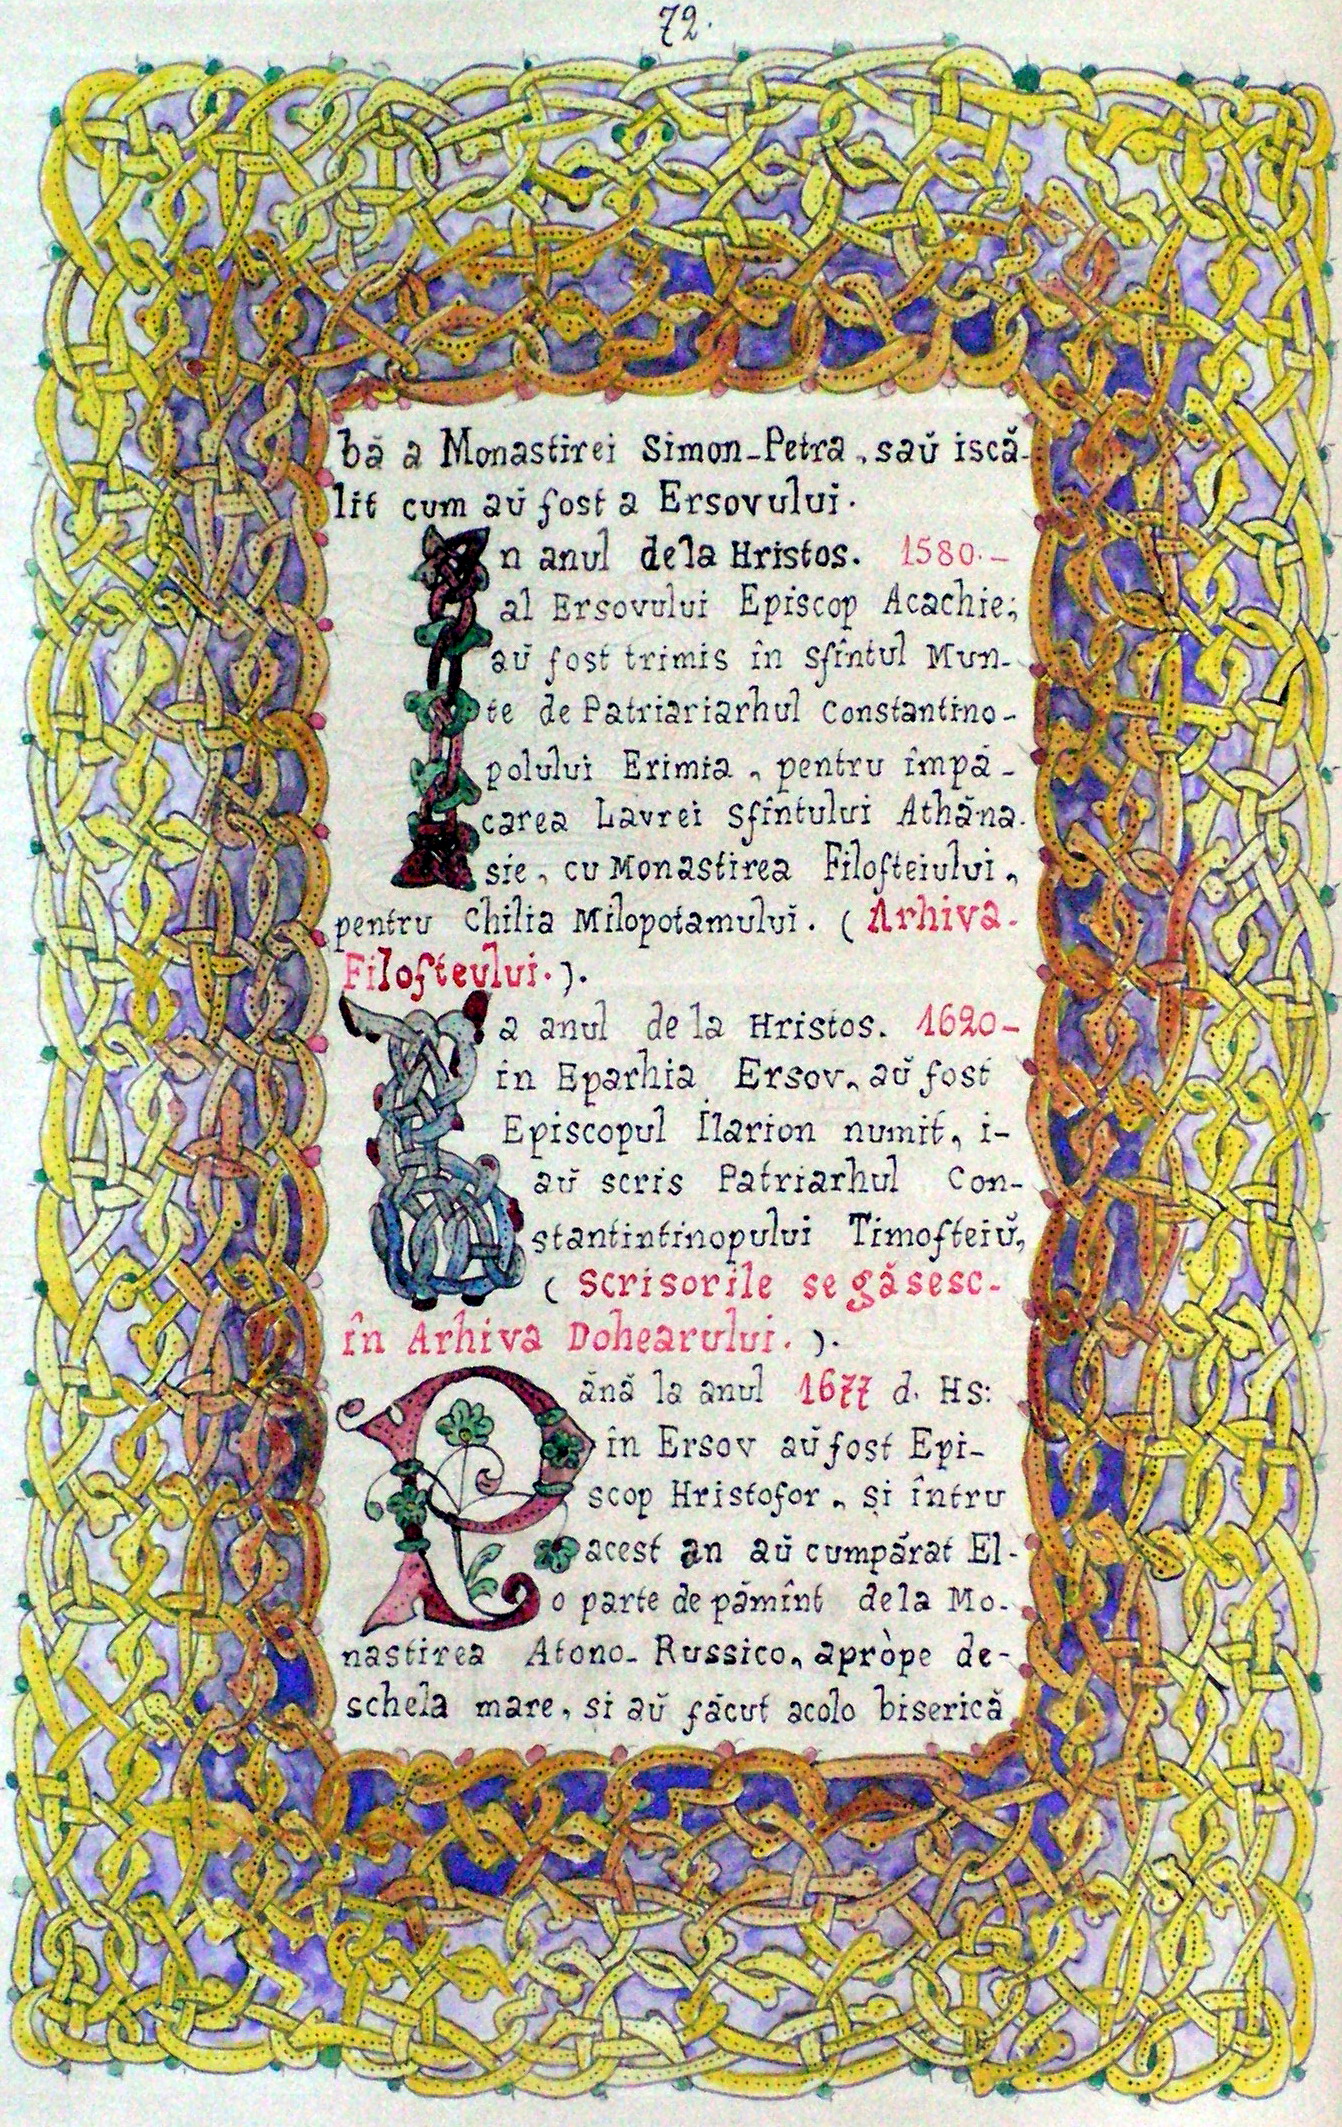 72.
bă a Monastirei Simon-Petra, saŭ iscă-
lit cum aŭ fost a Ersovului.
În anul dela Hristos. 1580.-
al Ersovului Episcop Acachie;
aŭ fost trimis în Sfîntul Mun-
te de Patriariarhul Constantino-
polului Erimia, pentru împă-
carea Lavrei Sfîntului Athăna-
sie, cu Monastirea Filofteiului,
pentru Chilia Milopotamului. (Arhiva-
Filofteului.).
La anul de la Hristos. 1620-
in Eparhia Ersov, aŭ fost
Episcopul Ilarion numit, i-
aŭ scris Patriarhul Con-
stantintinopului Timofteiŭ,
(Scrisorile se găsesc-
în Arhiva Dohearului.).
Pănă la anul 1677 d. Hs:
in Ersov aŭ fost Epi-
scop Hristofor, si întru
acest an aŭ cumpărat El-
o parte de pămînt dela Mo-
nastirea Atono-Russico, apròpe de-
schela mare, si aŭ făcut acolo biserică